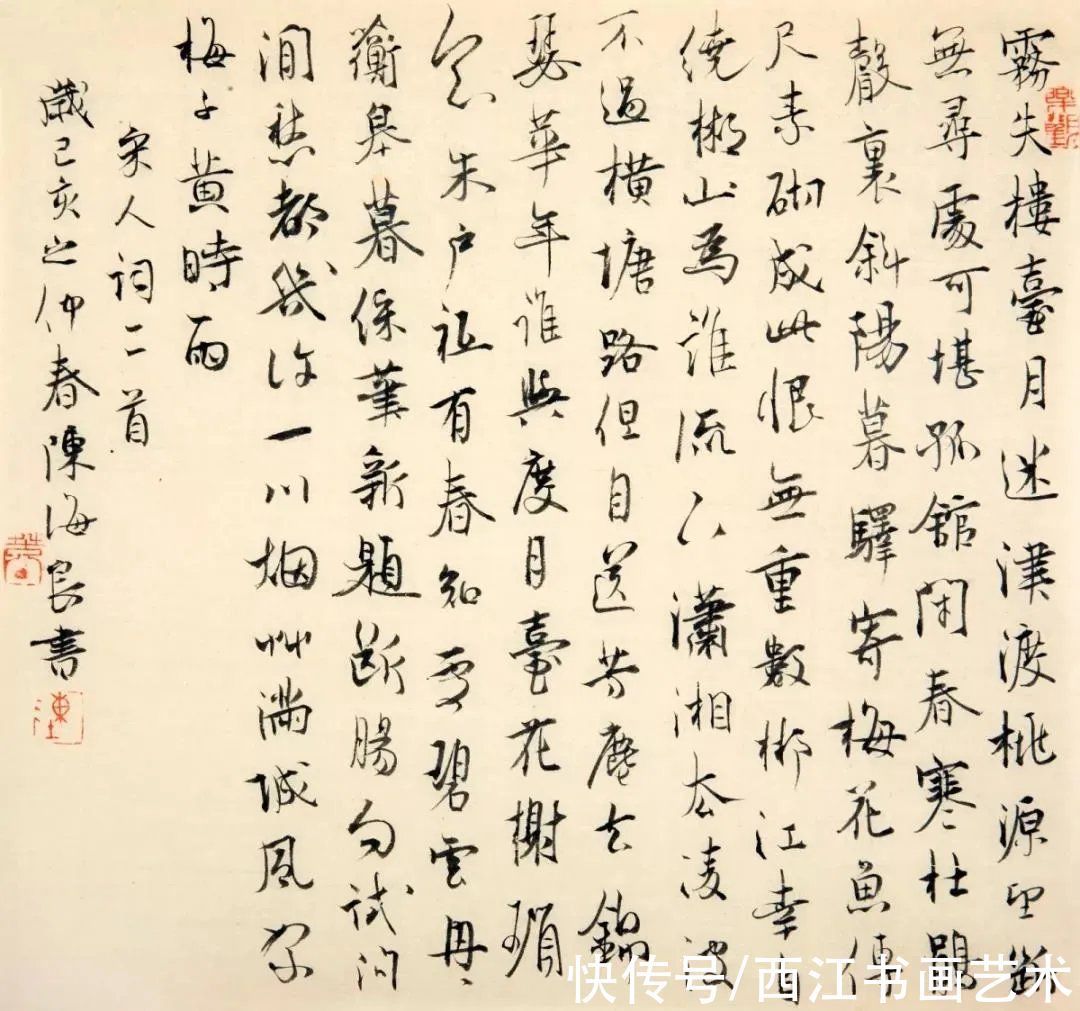 霧失樓臺月迷津渡桃源望斷
無尋處可堪孤館閑春寒杜鵑
聲裏斜陽暮驛寄梅花魚傳
尺素砌成此恨無重數郴江幸自
繞郴山為誰流下瀟湘去凌波
不過橫塘路但目送芳塵去錦
瑟華年誰與度月臺花榭瑣
窗朱戶祗有春知處碧雲冉冉
蘅皋暮綵筆新題斷腸句試問
閒愁都幾許一川烟艸滿城風絮
梅子黃時雨
宋人詞二首
歲己亥之仲春陳海良書
快传号/西江书画艺术